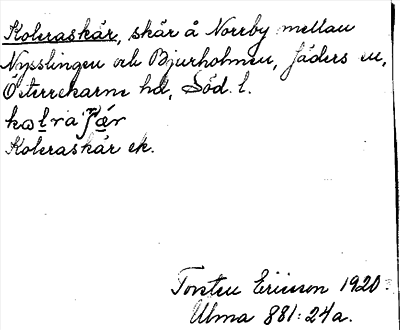 Koleraskär, skär å Norrby mellan
Nysslingen och Bjurholmen, Jäders sn,
Österrekarne hd, Söd. l.
Koleraskär ek.
Torsten Ericsson 1920.
Ulma 881:24a.